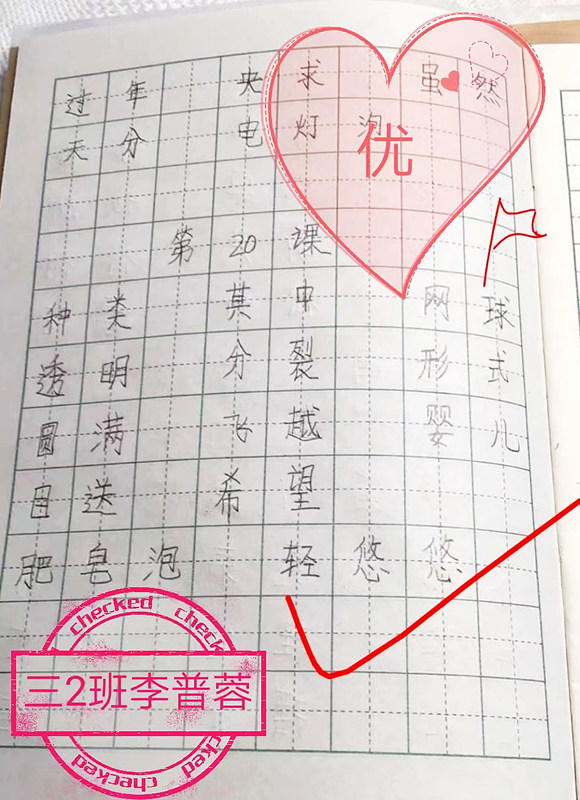 过年 央求 虽然
天分 电灯泡
优
第20课
种类 其中 网球
透明 分裂 形式
圆满 飞越 婴儿
目送 希望
肥皂泡 轻悠悠
checked check
三2班李普蓉
checked checked